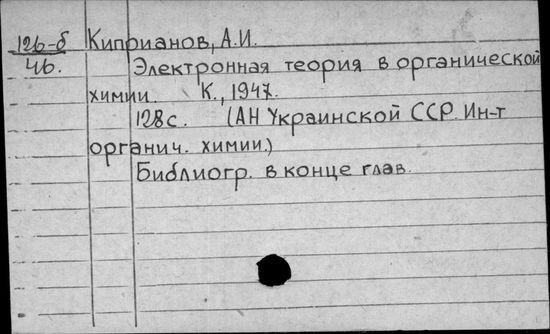 126-б Киприанов, А.И.
46. Электронная теория в органической
химии. К., 1947.
128с. (АН Украинской ССР. Ин-т
органич. химии.)
Библиогр. в конце глав.